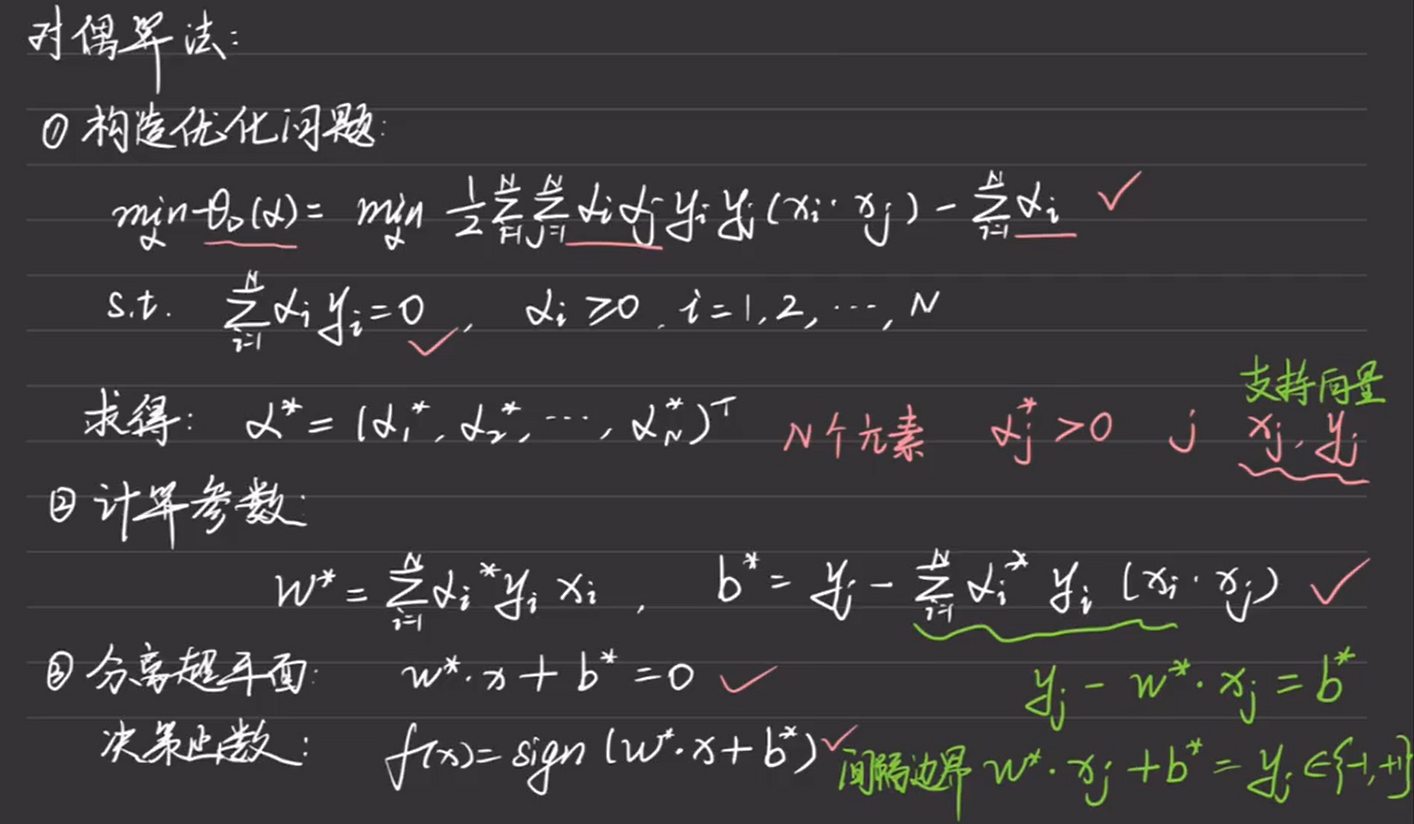 对偶算法:
① 构造优化问题:
min_α θ_D(α) = min_α 1/2 ∑_{i=1}^N ∑_{j=1}^N α_i α_j y_i y_j (x_i · x_j) - ∑_{i=1}^N α_i ✓
s.t. ∑_{i=1}^N α_i y_i = 0 ✓, α_i ≥ 0, i = 1, 2, ⋯, N
支持向量
求得: α* = (α_1*, α_2*, ⋯, α_N*)^T N个元素 α_j* > 0 j x_j, y_j
② 计算参数:
w* = ∑_{i=1}^N α_i* y_i x_i , b* = y_j - ∑_{i=1}^N α_i* y_i (x_i · x_j) ✓
③ 分离超平面: w* · x + b* = 0 ✓ y_j - w* · x_j = b*
决策函数: f(x) = sign (w* · x + b*) ✓ 间隔边界 w* · x_j + b* = y_j ∈ {-1, +1}